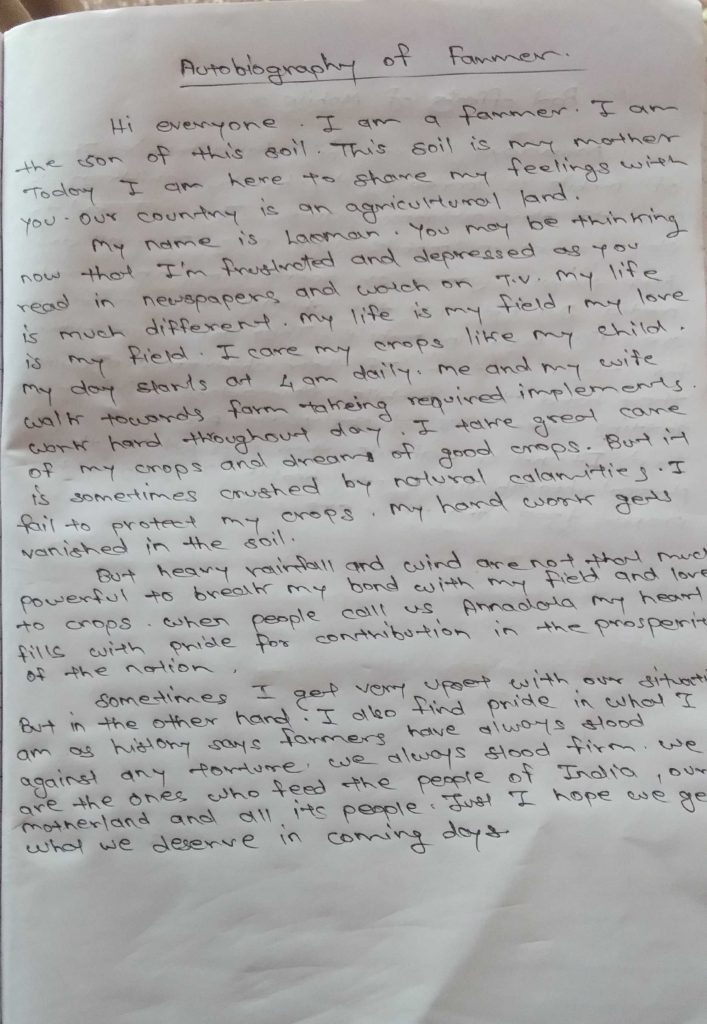 Autobiography of Farmer.
Hi everyone. I am a farmer. I am
the son of this soil. This soil is my mother
Today I am here to share my feelings with
you. Our country is an agricultural land.
My name is Laxman. You may be thinking
now that I'm frustrated and depressed as you
read in newspapers and watch on T.V. My life
is much different. My life is my field, my love
is my field. I care my crops like my child.
My day starts at 4 am daily. Me and my wife
walk towards farm takeing required implements.
work hard throughout day. I take great care
of my crops and dreams of good crops. But it
is sometimes crushed by natural calamities. I
fail to protect my crops. My hard work gets
vanished in the soil.
But heavy rainfall and wind are not that much
powerful to break my bond with my field and love
to crops. When people call us Annadata my heart
fills with pride for contribution in the prosperit
of the nation.
Sometimes I get very upset with our situati
But in the other hand. I also find pride in what I
am as history says farmers have always stood
against any torture. We always stood firm. We
are the ones who feed the people of India, our
motherland and all its people. Just I hope we ge
what we deserve in coming days